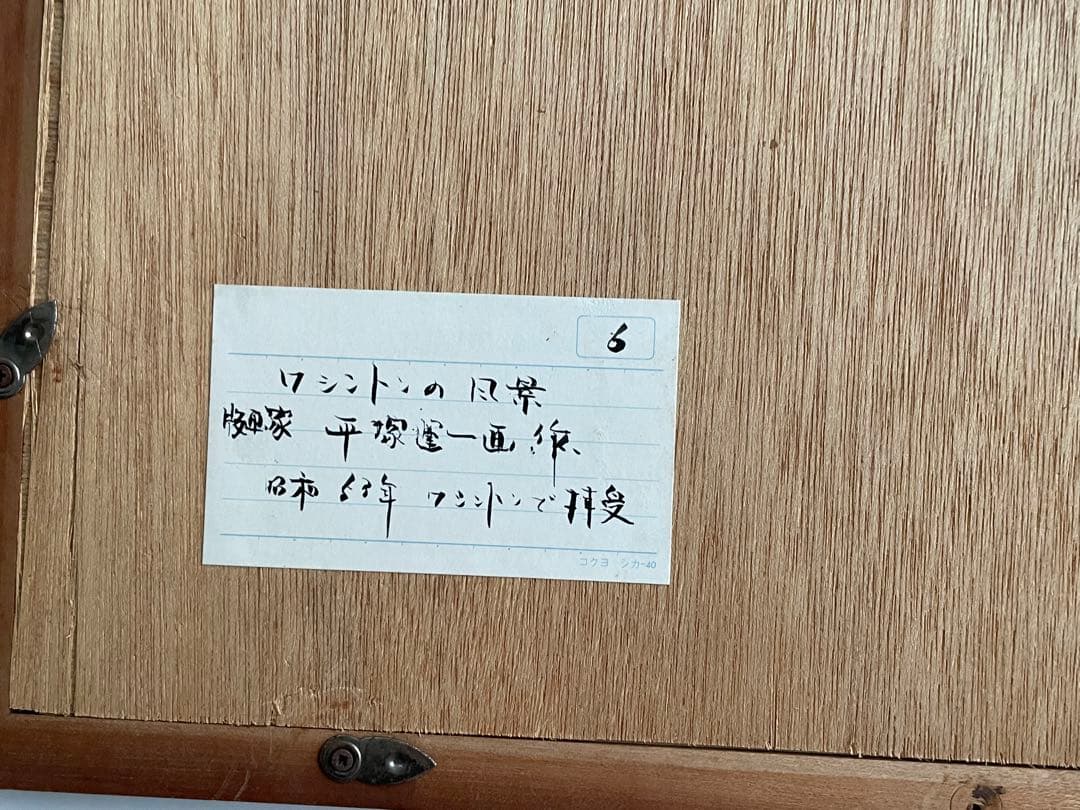 6
ワシントンの風景
版画家 平塚運一画伯作
昭和53年 ワシントンで拝受
コクヨ シカ-40